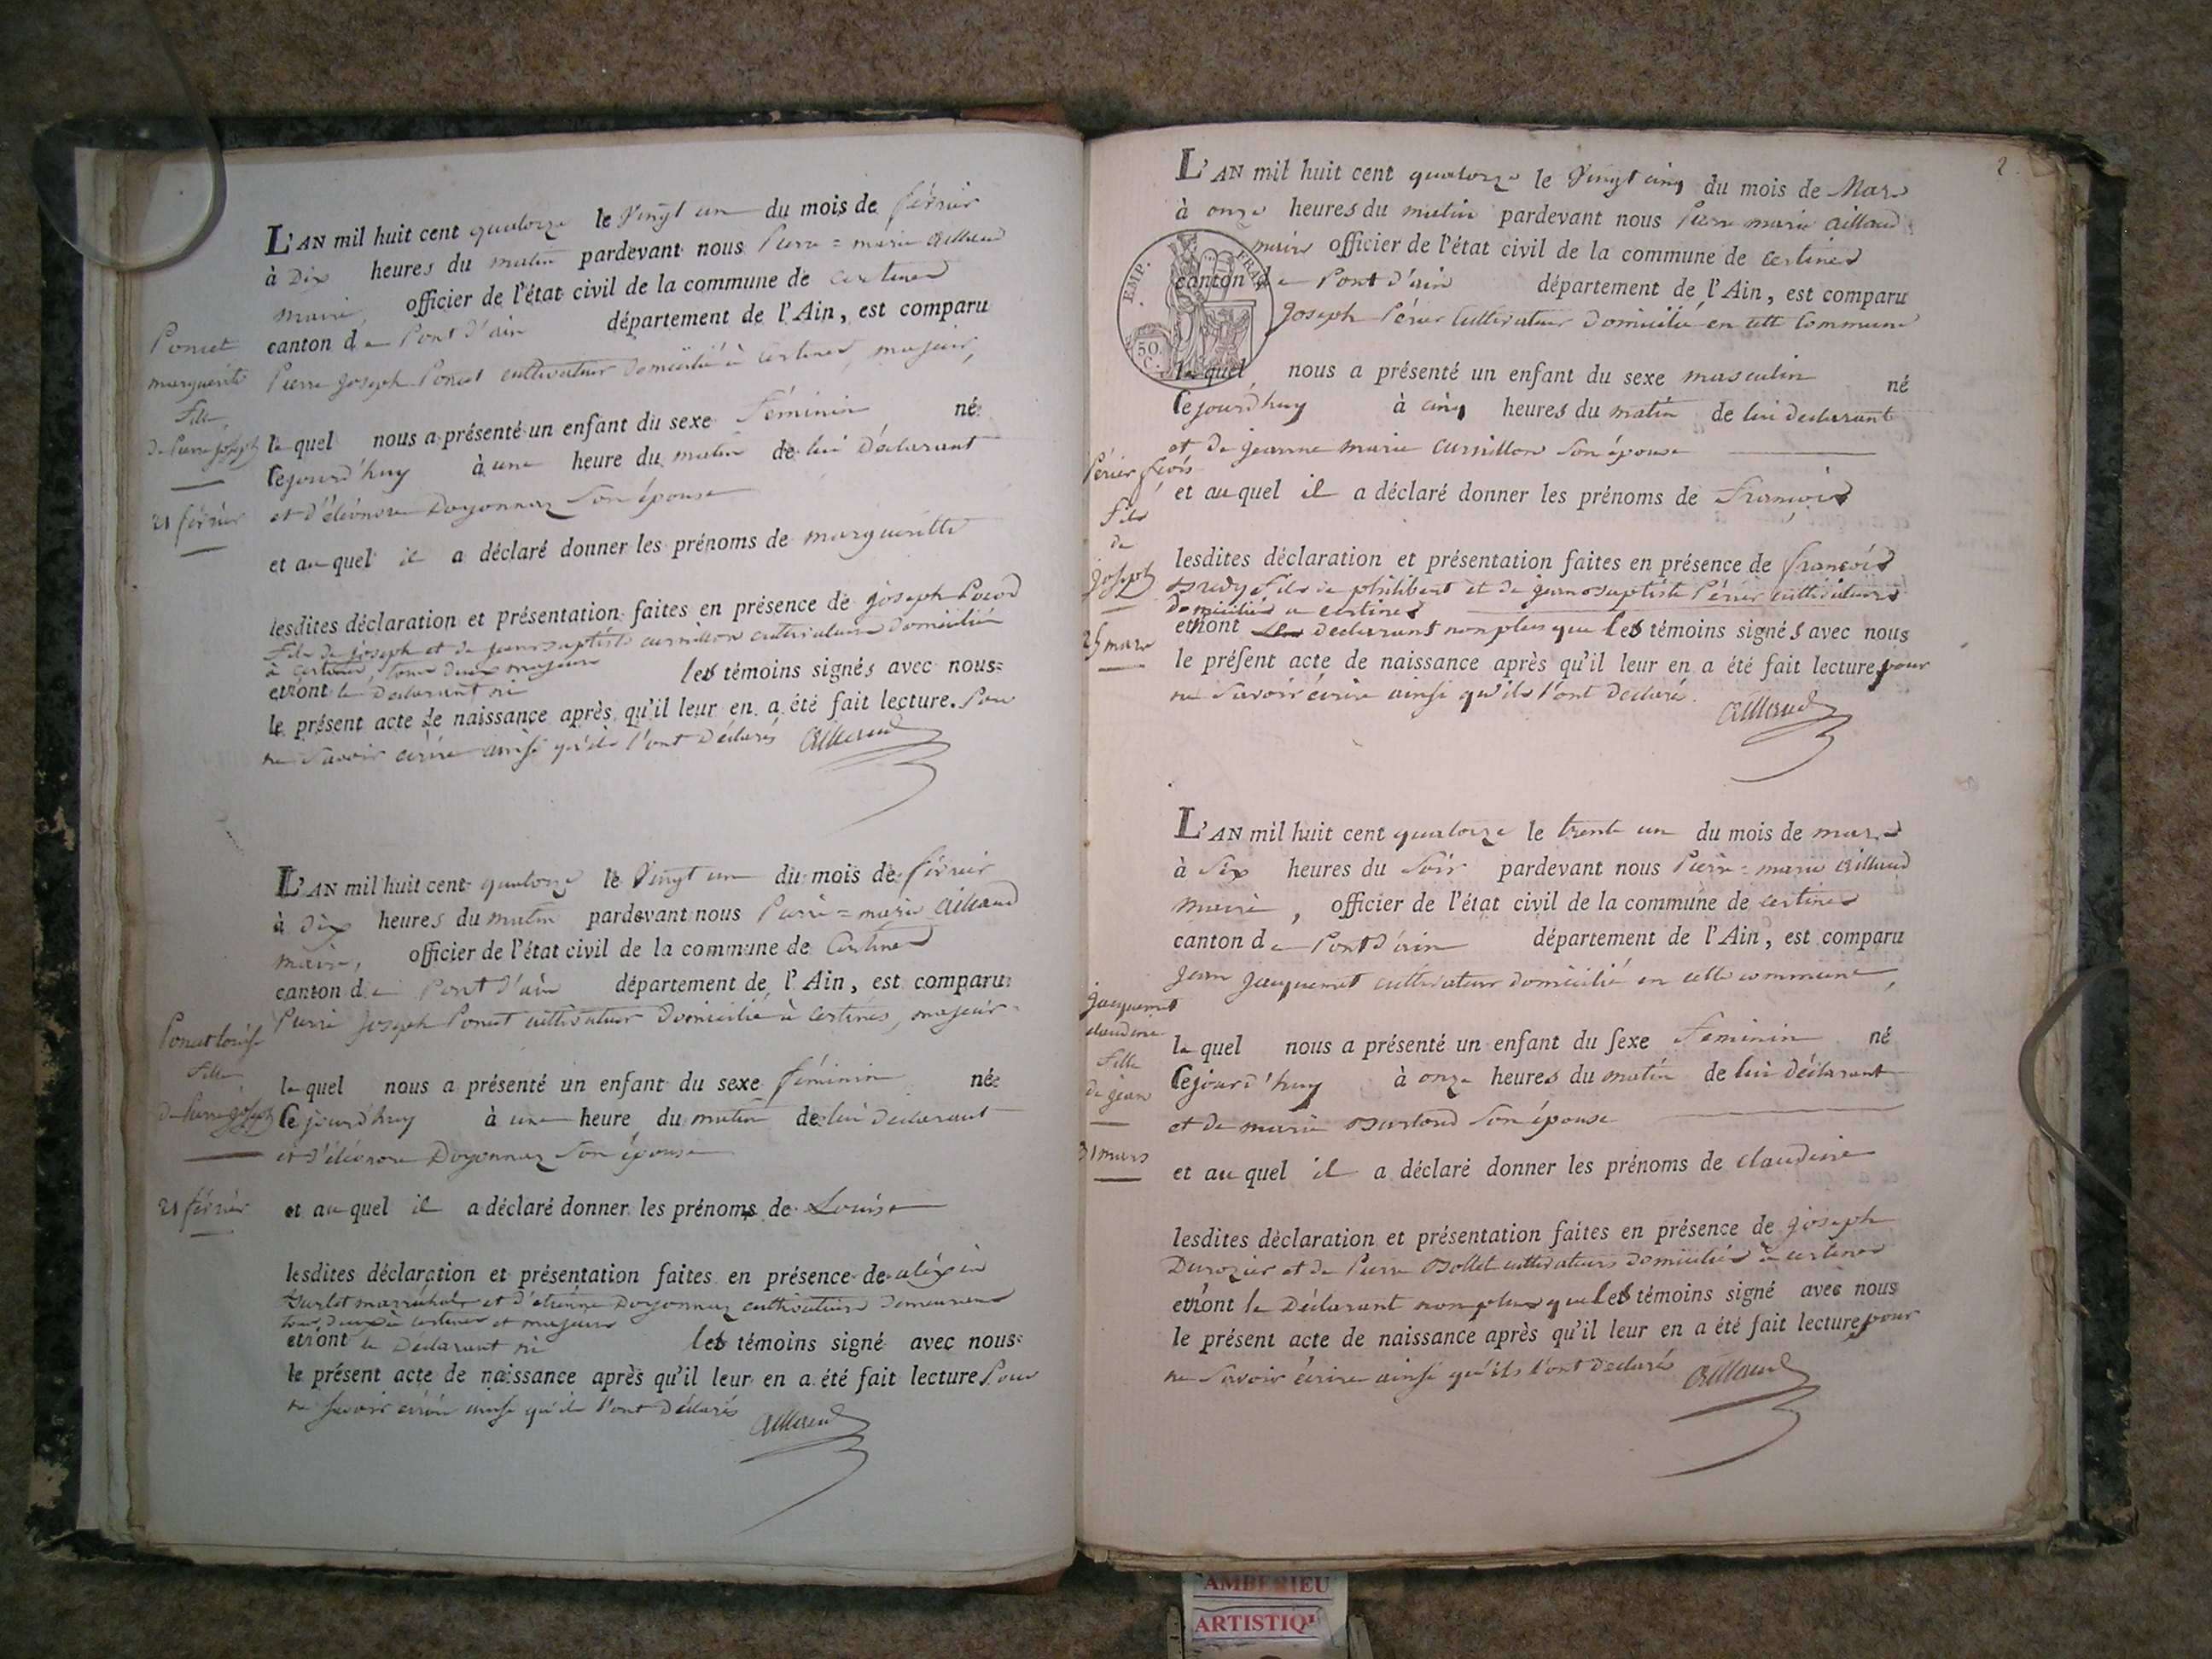 L'AN mil huit cent quatorze le vingt un du mois de février
à Dix heures du matin pardevant nous Pierre = marie Aillaud
maire, officier de l'état civil de la commune de certines
canton de Pont d'ain département de l'Ain, est comparu
Pierre joseph Poncet cultivateur domicilié à certines, majeur,
le quel nous a présenté un enfant du sexe féminin né
cejourd'huy à une heure du matin de lui déclarant
et d'éléonore Doyonnaz son épouse
et au quel il a déclaré donner les prénoms de margueritte
lesdites déclaration et présentation faites en présence de joseph
fils de joseph et de jean baptiste curnillon cultivateurs domiciliés
à certines, tous deux majeurs
et n'ont le déclarant ni les témoins signés avec nous
le présent acte de naissance après qu'il leur en a été fait lecture. Pour
ne savoir écrire ainsi qu'ils l'ont déclarés Aillaud
Poncet
marguerite
fille
de Pierre joseph
21 février
L'AN mil huit cent quatorze le vingt un du mois de février
à dix heures du matin pardevant nous Pierre = marie Aillaud
maire, officier de l'état civil de la commune de Certines
canton de Pont d'ain département de l'Ain, est comparu
Pierre joseph Poncet cultivateur domicilié à certines, majeur
le quel nous a présenté un enfant du sexe féminin né
cejourd'huy à une heure du matin de lui déclarant
et d'éléonore Doyonnaz son épouse
et au quel il a déclaré donner les prénoms de Louise
lesdites déclaration et présentation faites en présence de alexis
marréchal et d'etienne Doyonnaz cultivateurs demeurans
tous deux à certines et majeurs
et n'ont le déclarant ni les témoins signé avec nous
le présent acte de naissance après qu'il leur en a été fait lecture Pour
ne savoir écrire ainsi qu'ils l'ont déclarés Aillaud
Poncet louise
fille
de Pierre joseph
21 février
2.
L'AN mil huit cent quatorze le vingt cinq du mois de Mars
à onze heures du matin pardevant nous Pierre marie Aillaud
maire officier de l'état civil de la commune de certines
canton de Pont d'ain département de l'Ain, est comparu
joseph Périer cultivateur domicilié en cette commune
EMP. FRANC
50.
C.
le quel nous a présenté un enfant du sexe masculin né
cejourd'huy à cinq heures du matin de lui declarant
et de jeanne marie curnillon son épouse
et au quel il a déclaré donner les prénoms de françois
lesdites déclaration et présentation faites en présence de françois
fils de philibert et de jean baptiste Périer cultivateurs
domiciliés a certines
et n'ont declarant non plus que les témoins signés avec nous
le présent acte de naissance après qu'il leur en a été fait lecture, pour
ne savoir écrire ainsi qu'ils l'ont declarés. Aillaud
Périer fçois
fils
de
joseph
25 mars
L'AN mil huit cent quatorze le trente un du mois de mars
à six heures du soir pardevant nous Pierre = marie Aillaud
maire, officier de l'état civil de la commune de certines
canton de Pont d'ain département de l'Ain, est comparu
jean jacquemet cultivateur domicilié en cette commune,
le quel nous a présenté un enfant du sexe féminin né
cejourd'huy à onze heures du matin de lui déclarant
et de marie son épouse
et au quel il a déclaré donner les prénoms de claudine
lesdites déclaration et présentation faites en présence de joseph
Durozier et de Pierre Bollet cultivateurs domiciliés à certines
et n'ont le Déclarant non plus que les témoins signé avec nous
le présent acte de naissance après qu'il leur en a été fait lecture, pour
ne savoir écrire ainsi qu'ils l'ont declarés Aillaud
jacquemet
claudine
fille
de jean
31 mars
AMBERIEU
ARTISTIQU